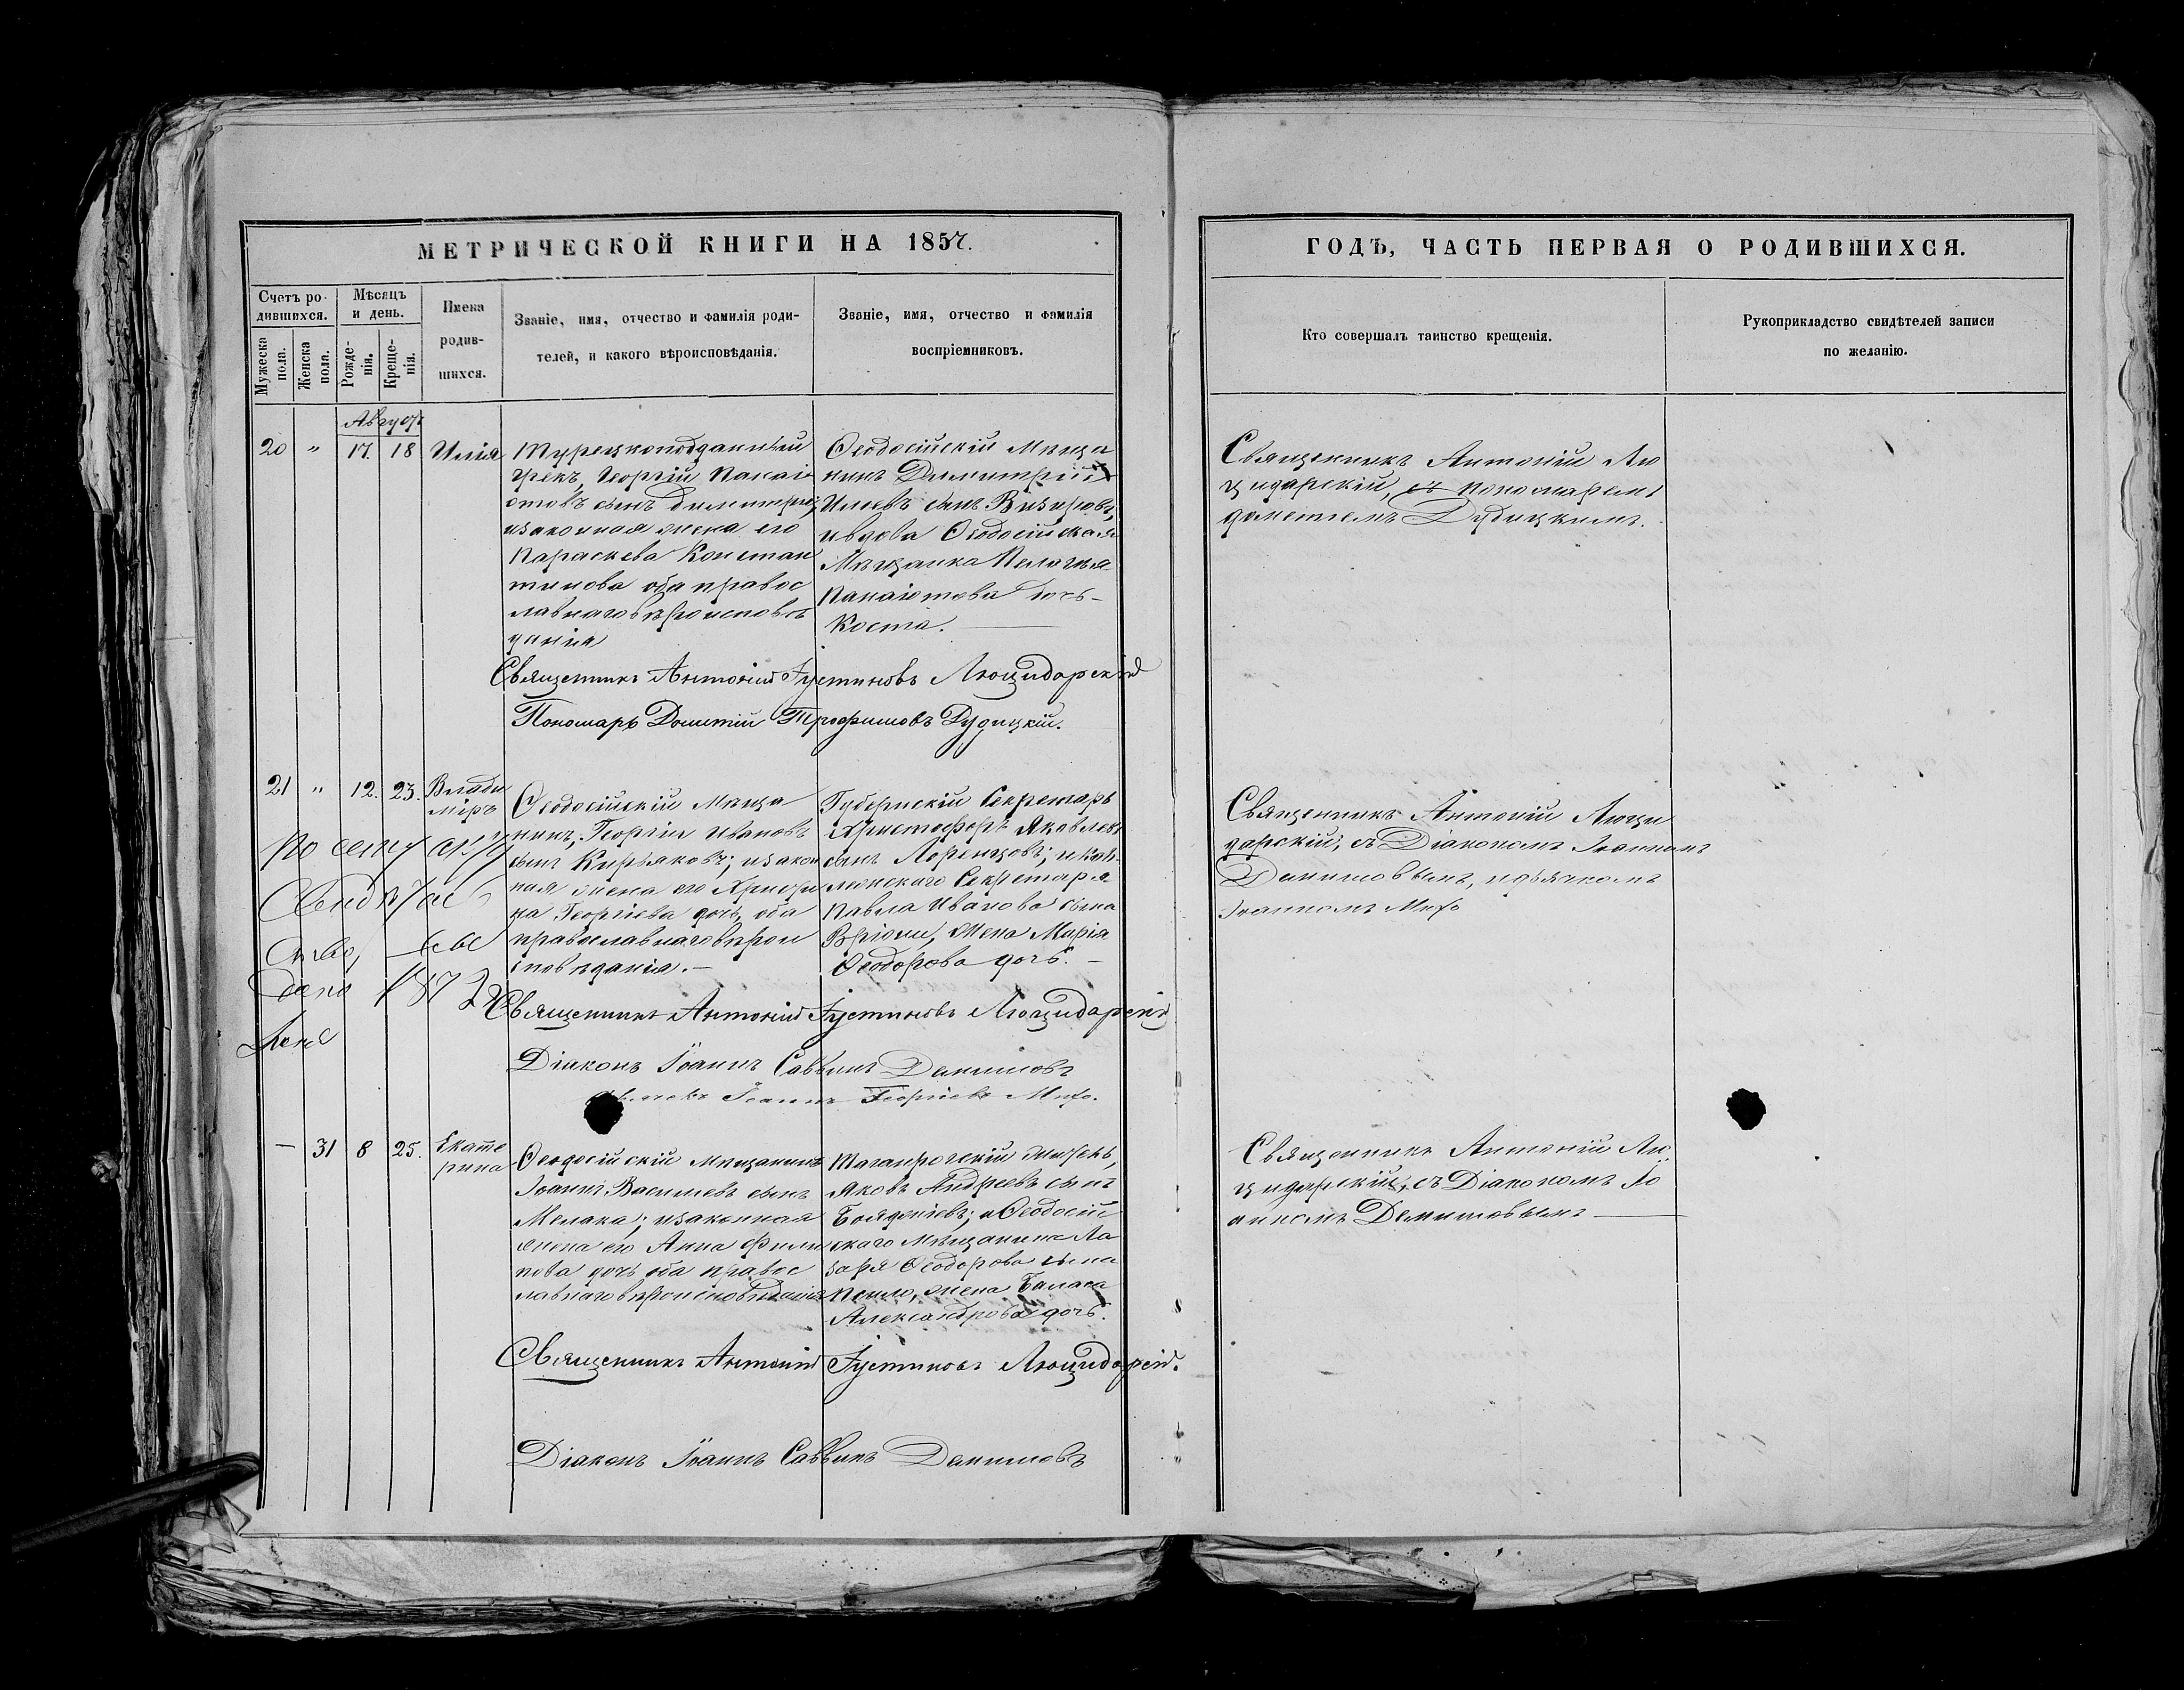 МЕТРИЧЕСКОЙ КНИГИ НА 1857.
Счетъ ро-
дившихся.
Мужеска пола.
Женска пола.
Мѣсяцъ
и день.
Рожде-
нія.
Креще-
нія.
Имена
родив-
шихся.
Званіе, имя, отчество и фамилія роди-
телей, и какого вѣроисповѣданія.
Званіе, имя, отчество и фамилія
воспріемниковъ.
Август
20 " 17. 18 Илія
Турецкоподданный
грекъ, Георгій Панаіо
товъ сынъ Димитріу,
изаконная жена его
Параскева Констан
тинова оба правос
лавнаго вѣроисповѣ
данія
Ѳеодосійскій Мѣща
нинъ Димитрій
Ильевъ сынъ
ивдова Ѳеодосійская
Мѣщанка Пелагія
Панаіотова дочь
Коста.
Священникъ Антоній Іустиновъ Люцидарскій
Пономарь Дометій Трофимовъ Дудицкій.
21 " 12. 23. Влади
міръ
Ѳеодосійскій Мѣща
нинъ, Георгій Ивановъ
сынъ Кирьяковъ; изакон
ная жена его
Георгіева дочь, оба
православнаго вѣрои
сповѣданія.
Губернскій Секретарь
Христофоръ Яковлевъ
сынъ Лоренцовъ; и Кол-
лежскаго Секретаря
Павла Иванова сына
Вріони, жена Марія
Ѳеодорова дочь.
По сему акту
Свидѣтель
ство
дано 1872
Священникъ Антоній Іустиновъ Люцидарскій
Діаконъ Іоаннъ Саввинъ Даниловъ
Іоаннъ Георгіевъ Михо.
— 31 8 25. Екате
рина
Ѳеодосійскій Мѣщанинъ
Іоаннъ Васильевъ сынъ
Мелака; изаконная
жена его Анна Фили
пова дочь оба правос
лавнаго вѣроисповѣданія
Таганрогскій житель,
Яковъ Андреевъ сынъ
и Ѳеодосій
скаго Мѣщанина Ла
заря Ѳеодорова сына
жена
Александрова дочь.
Священникъ Антоній Іустиновъ Люцидарскій.
Діаконъ Іоаннъ Саввинъ Даниловъ
ГОДЪ, ЧАСТЬ ПЕРВАЯ О РОДИВШИХСЯ.
Кто совершалъ таинство крещенія.
Рукоприкладство свидѣтелей записи
по желанію.
Священникъ Антоній Лю
цидарскій, съ пономаремъ
Дометіемъ Дудицкимъ.
Священникъ Антоній Люци
дарскій; съ Діакономъ Іоанномъ
Даниловымъ, идьячкомъ
Іоанномъ Михо
Священникъ Антоній Лю
цидарскій, съ Діакономъ Іо
анномъ Даниловымъ